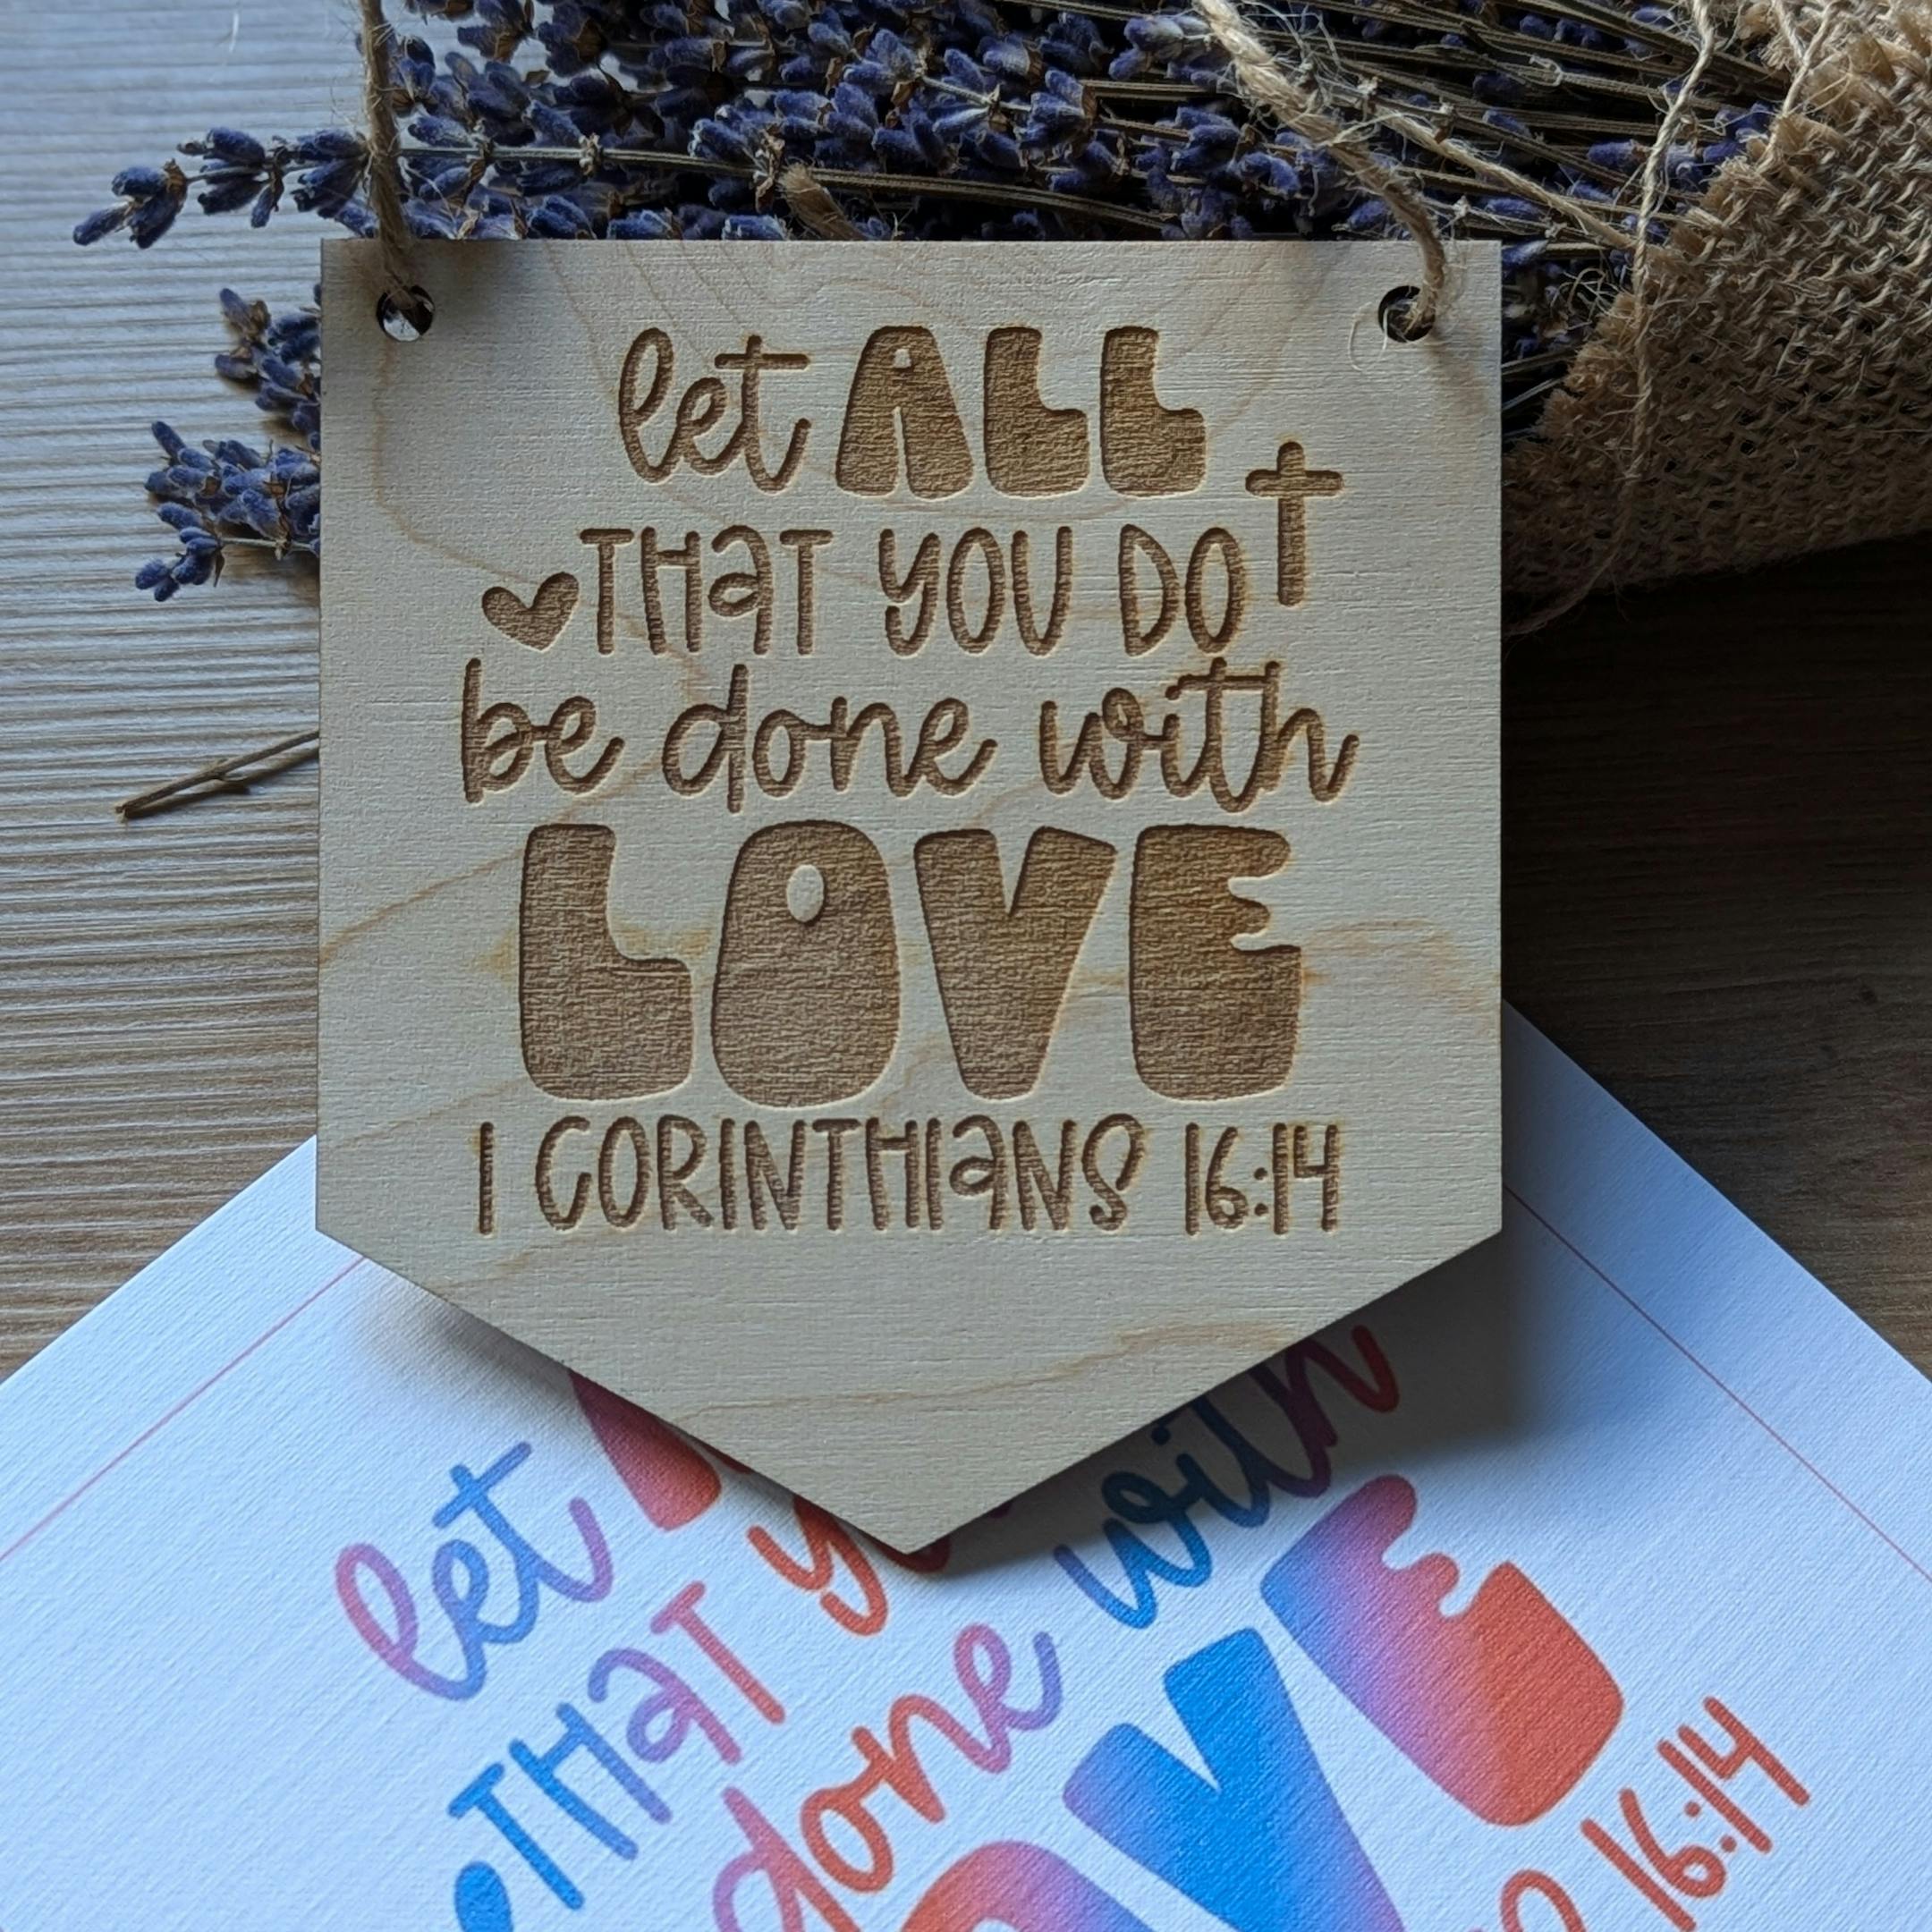 let ALL
THAT YOU DO
be done with
LOVE
1 CORINTHIANS 16:14
let
THAT
done with
VE
16:14